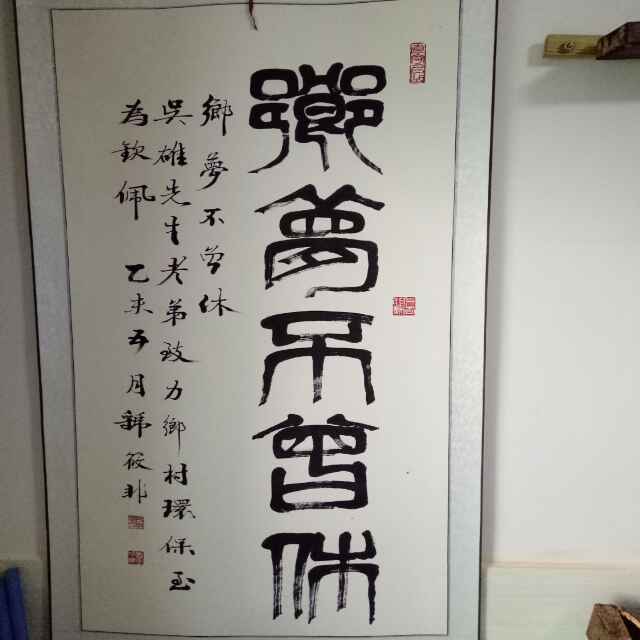 鄉夢不曾休
鄉夢不曾休
吳雄先生老弟致力鄉村環保至
為欽佩 乙未五月 筱邦